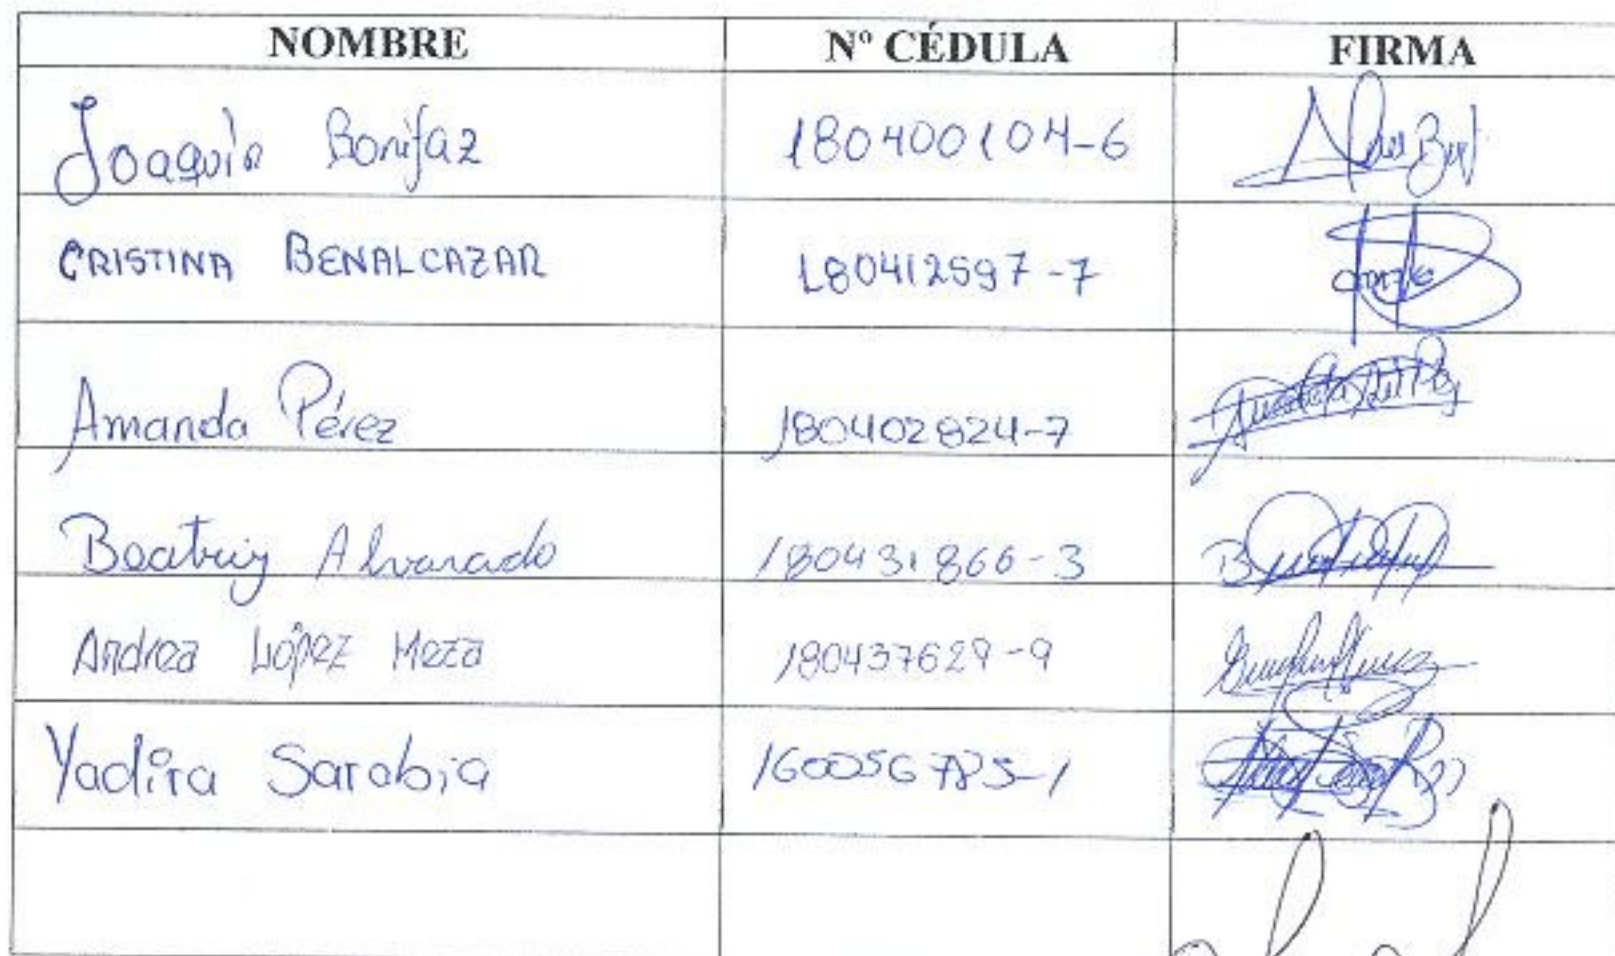 NOMBRE Nº CÉDULA FIRMA
Joaquín Bonifaz 180400104-6
CRISTINA BENALCAZAR 180412597-7
Amanda Pérez 180402824-7
Beatriz Alvarado 180431866-3
Andrea López Meza 180437629-9
Yadira Sarabia